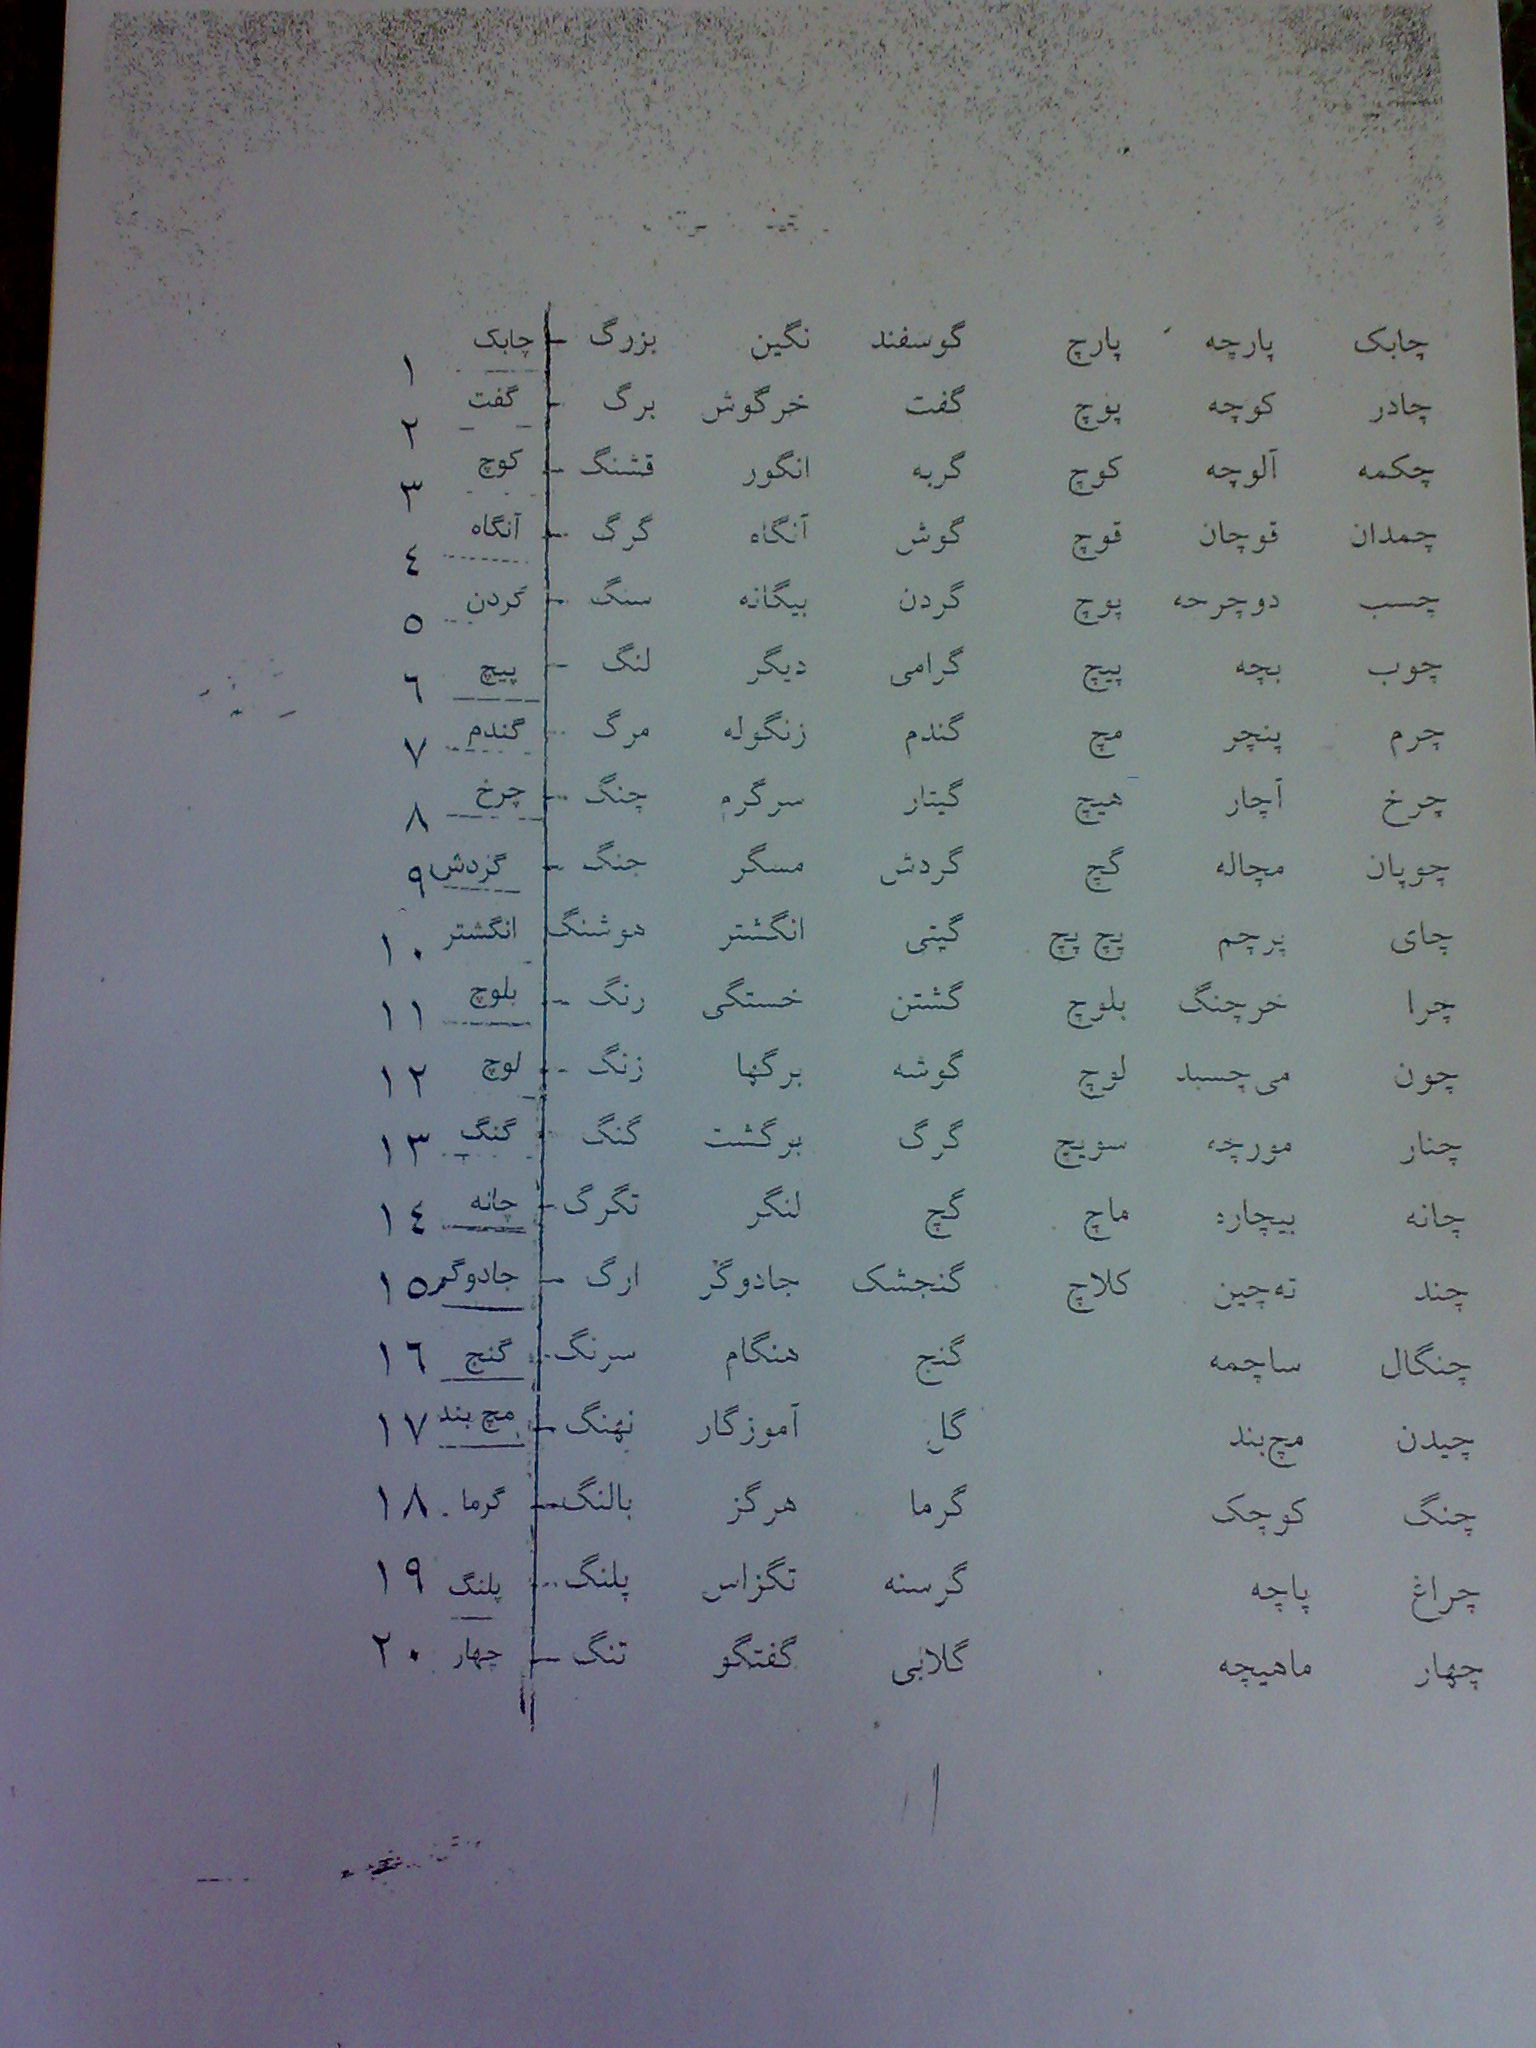 چابک پارچه پارچ گوسفند نگین بزرگ - چابک ۱
چادر کوچه پوچ گفت خرگوش برگ - گفت ۲
چکمه آلوچه کوچ گربه انگور قشنگ - کوچ ۳
چمدان قوچان قوچ گوش آنگاه گرگ - آنگاه ٤
چسب دوچرخه پوچ گردن بیگانه سنگ - گردن ۵
چوب بچه پیچ گرامی دیگر لنگ - پیچ ٦
چرم پنچر مچ گندم زنگوله مرگ - گندم ۷
چرخ آچار هیچ گیتار سرگرم چنگ - چرخ ۸
چوپان مچاله گچ گردش مسگر جنگ - گردش ۹
چای پرچم پچ پچ گیتی انگشتر هوشنگ انگشتر ۱۰
چرا خرچنگ بلوچ گشتن خستگی رنگ - بلوچ ۱۱
چون می‌چسبد لوچ گوشه برگها زنگ - لوچ ۱۲
چنار مورچه سویچ گرگ برگشت گنگ - گنگ ۱۳
چانه بیچاره ماچ گچ لنگر تگرگ - چانه ۱٤
چند ته‌چین کلاچ گنجشک جادوگر ارگ - جادوگر ۱۵
چنگال ساچمه گنج هنگام سرنگ - گنج ۱٦
چیدن مچ‌بند گل آموزگار نهنگ - مچ‌بند ۱۷
چنگ کوچک گرما هرگز بالنگ - گرما ۱۸
چراغ پاچه گرسنه تگزاس پلنگ - پلنگ ۱۹
چهار ماهیچه گلابی گفتگو تنگ - چهار ۲۰